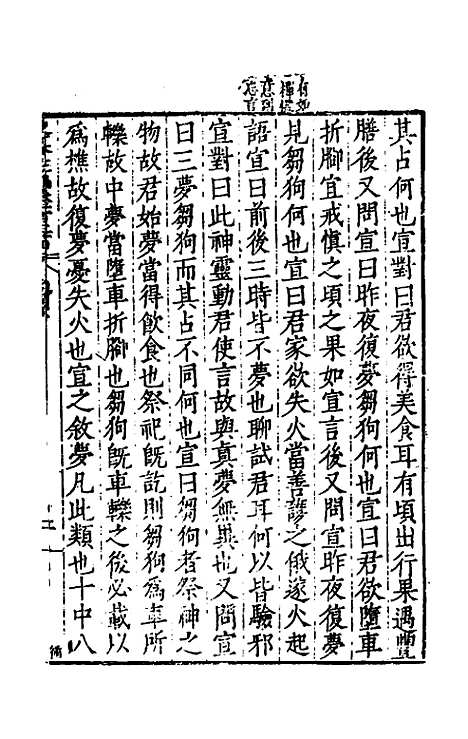 其占何也宣對曰君欲得美食耳有頃出行果遇豐
膳後又問宣曰昨夜復夢芻狗何也宣曰君欲墮車
折腳宜戒慎之頃之果如宣言後又問宣昨夜復夢
見芻狗何也宣曰君家欲失火當善護之俄遂火起
語宣曰前後三時皆不夢也聊試君耳何以皆驗邪
宣對曰此神靈動君使言故與真夢無異也又問宣
曰三夢芻狗而其占不同何也宣曰芻狗者祭神之
物故君始夢當得飲食也祭祀旣訖則芻狗為車所
轢故中夢當墮車折腳也芻狗旣車轢之後必載以
為樵故復夢憂失火也宣之敘夢凡此類也十中八